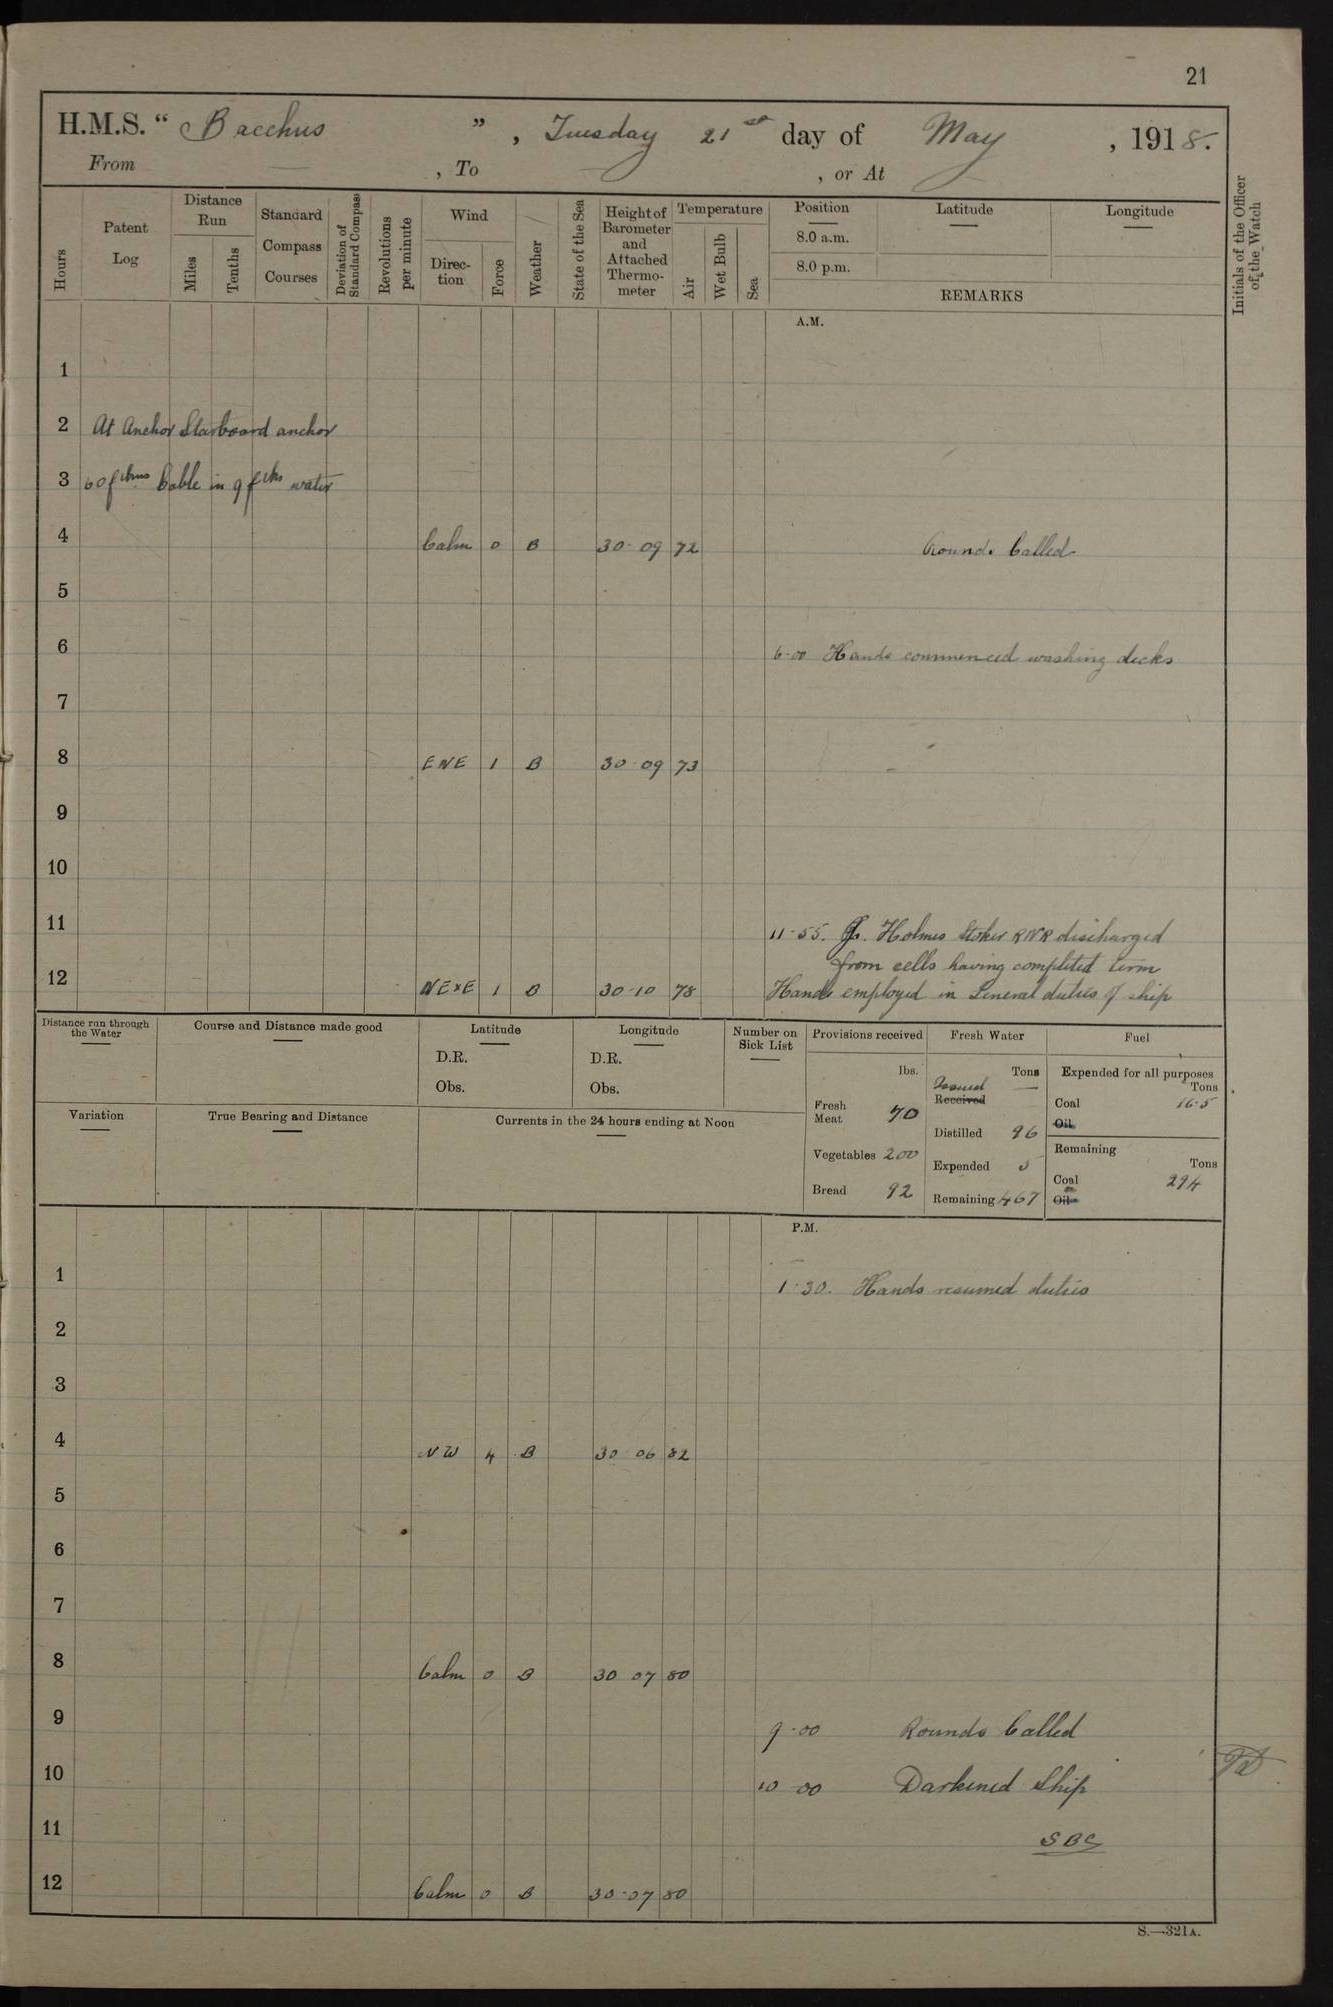 21
H.M.S. “ Bacchus ” , Tuesday 21st day of May , 1918.
From — , To — , or At
Hours
Patent Log
Distance Run
Miles
Tenths
Standard Compass Courses
Deviation of Standard Compass
Revolutions per minute
Wind
Direction
Force
Weather
State of the Sea
Height of Barometer and Attached Thermometer
Temperature
Air
Wet Bulb
Sea
Position
8.0 a.m.
8.0 p.m.
Latitude
Longitude
REMARKS
Initials of the Officer of the Watch
A.M.
1
2 At Anchor Starboard anchor
3 60 fthms Cable in 9 fths water
4 Calm 0 B 30·09 72 Rounds Called
5
6 6·00 Hands commenced washing decks
7
8 ENE 1 B 30 09 73
9
10
11 11·55. Holmes Stoker RNR discharged
from cells having completed term
12 NExE 1 B 30·10 78 Hands employed in General duties of ship
Distance run through the Water
Course and Distance made good
Latitude
D.R.
Obs.
Longitude
D.R.
Obs.
Number on Sick List
Variation
True Bearing and Distance
Currents in the 24 hours ending at Noon
Provisions received
lbs.
Fresh Meat 70
Vegetables 200
Bread 92
Fresh Water
Tons
Issued —
Received
Distilled 96
Expended
Remaining 467
Fuel
Expended for all purposes
Tons
Coal 16·5
Oil
Remaining
Tons
Coal 294
Oil
P.M.
1 1·30. Hands resumed duties
2
3
4 NW 4 B 30 06 82
5
6
7
8 Calm 0 B 30 07 80
9 9·00 Rounds Called
10 10 00 Darkened Ship
11 SBC
12 Calm 0 B 30·07 80
S.—321A.